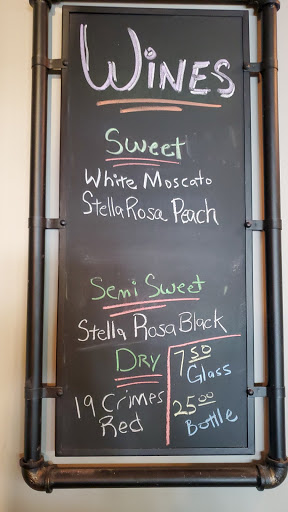 WINES
Sweet
White Moscato
Stella Rosa Peach
Semi Sweet
Stella Rosa Black
DRY
19 Crimes
Red
7 50
Glass
25 00
Bottle